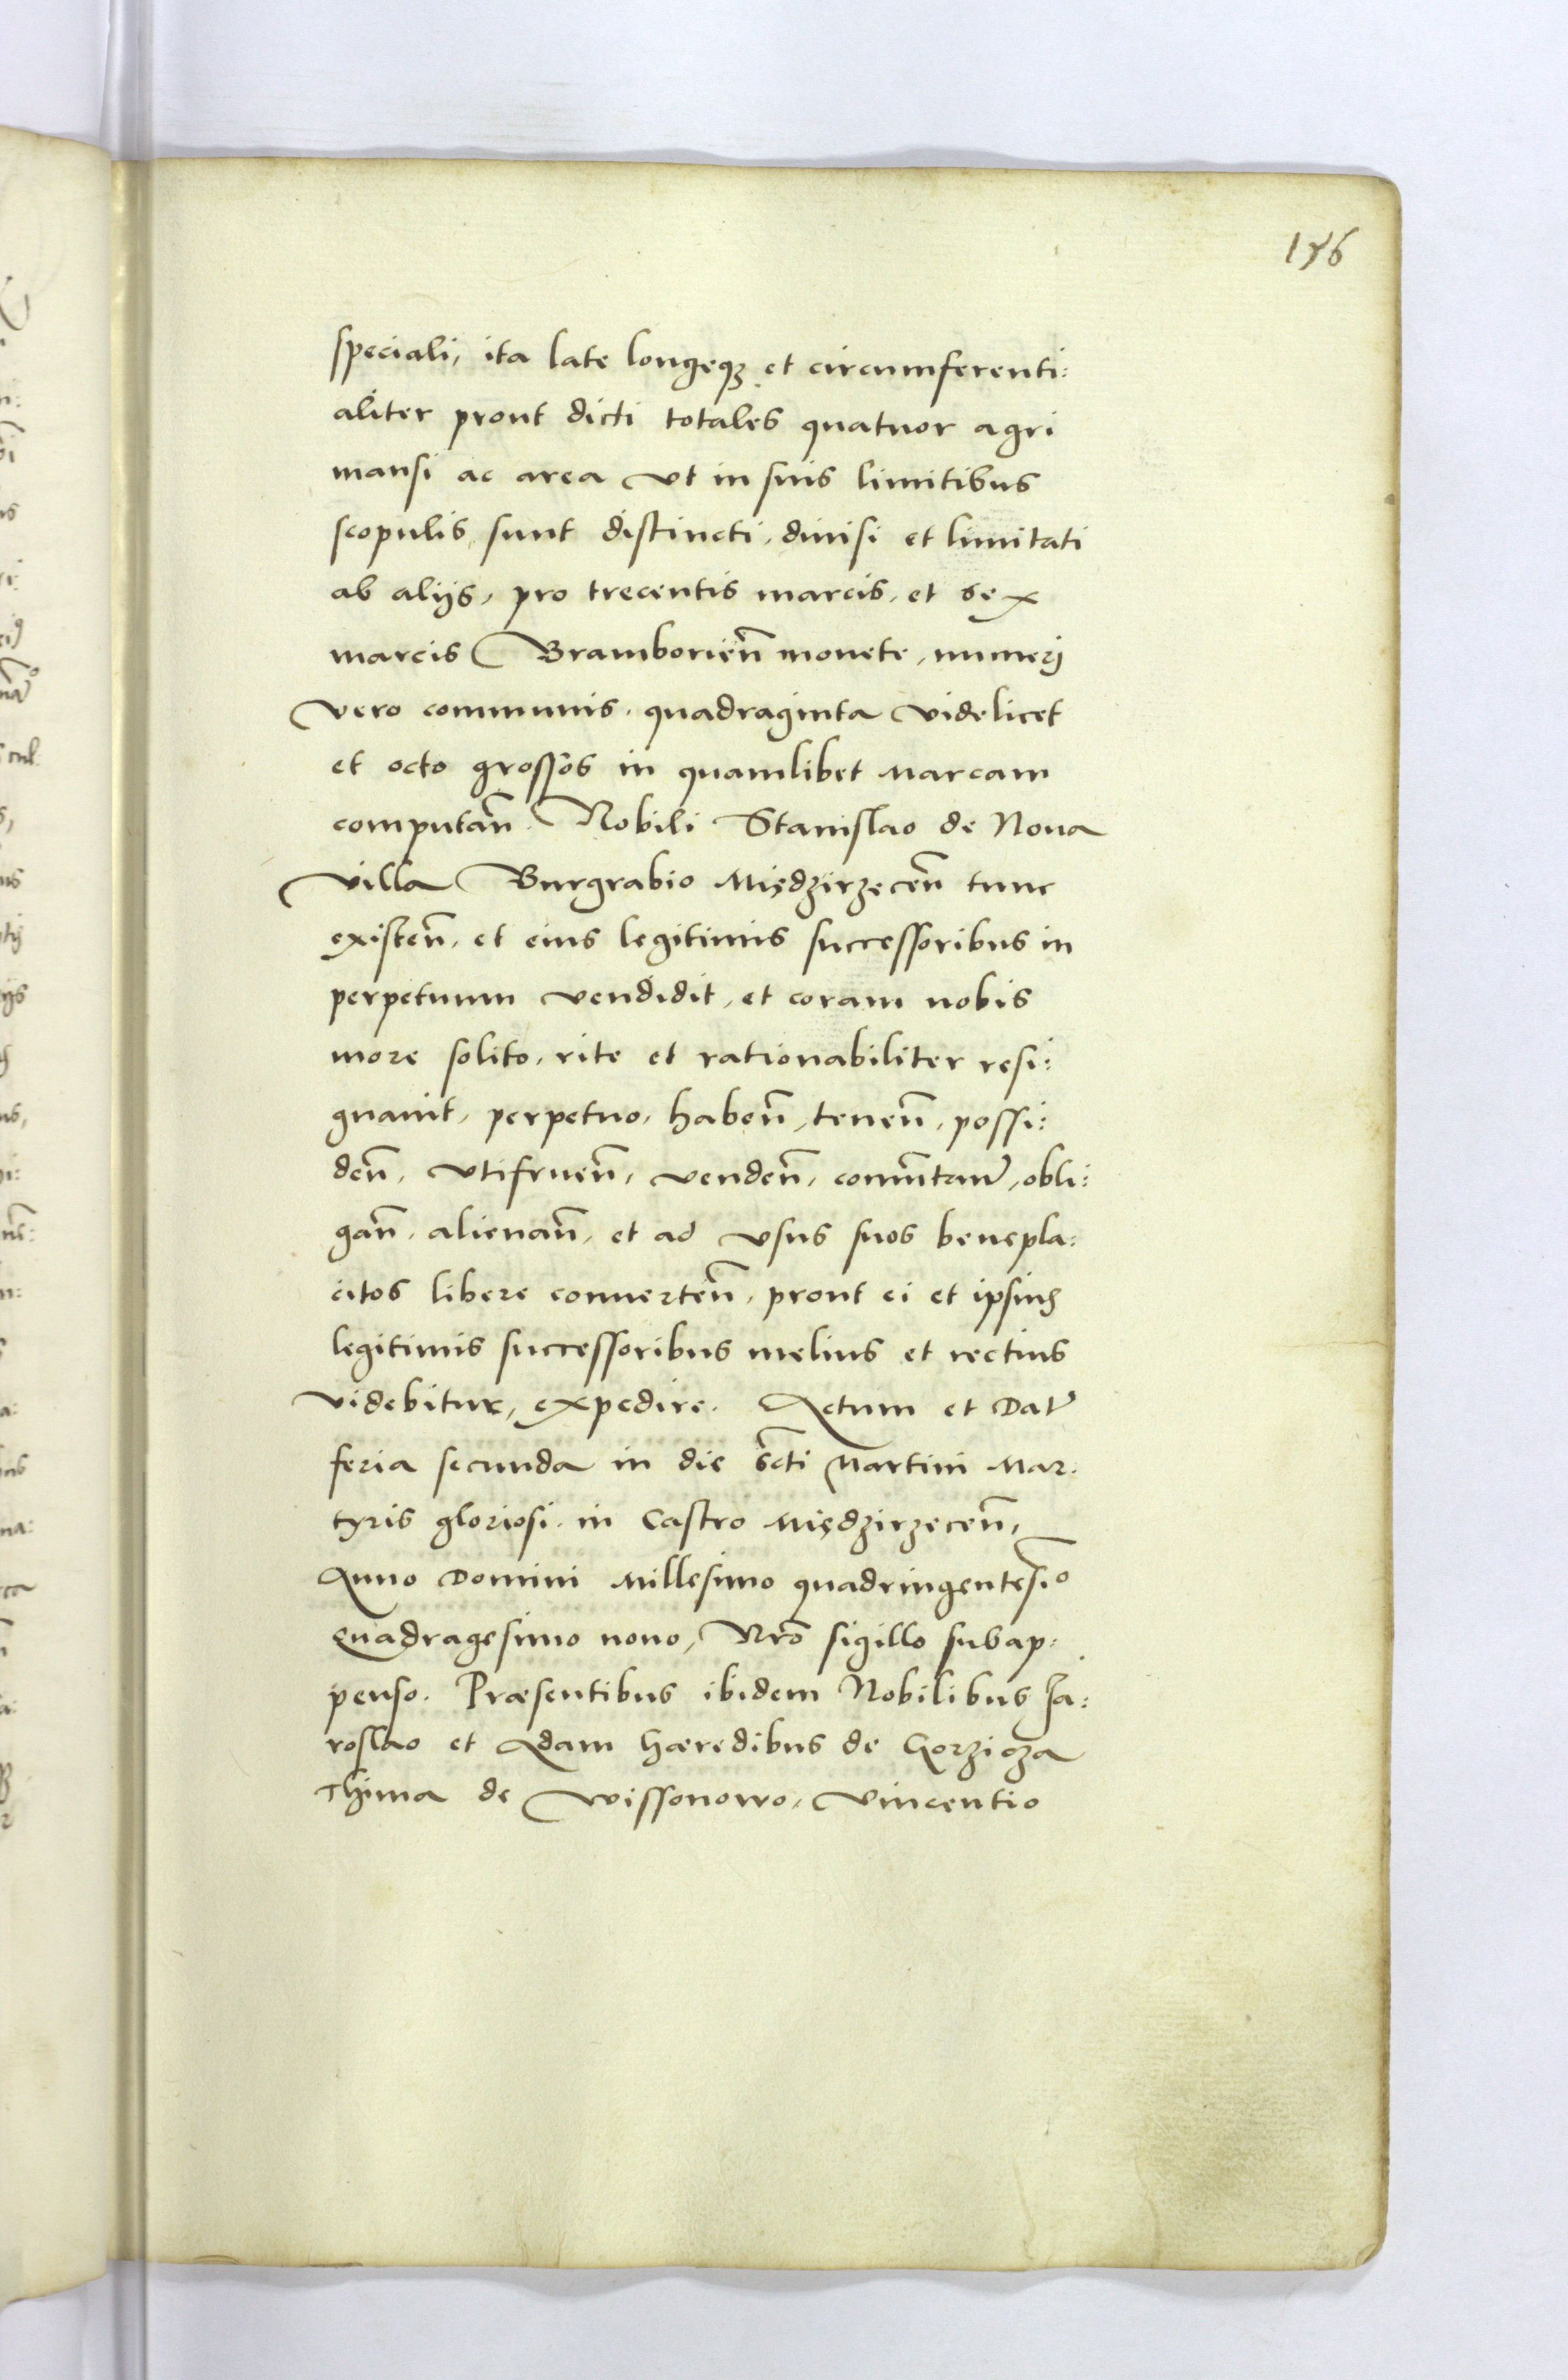 176
speciali, ita late longeq3 et circumferenti:
aliter prout dicti totales quatuor agri
mansi ac area vt in suis limitibus
scopulis sunt distincti, diuisi et limitati
ab aliis, pro trecentis marcis, et sex
marcis Bramborien̄ monete, numerj
vero communis, quadraginta videlicet
et octo grossos in quamlibet marcam
computan̄. Nobili Stanislao de Noua
villa Burgrabio Międzirzecen̄ tunc
existen̄, et eius legitimis successoribus in
perpetuum vendidit, et coram nobis
more solito, rite et rationabiliter resi:
gnauit, perpetuo, haben̄, tenen̄, possi:
den̄, vtifruen̄, venden̄, com̄utan̄, obli:
gan̄, alienan̄, et ad vsus suos benepla:
citos libere conuerten̄, prout ei et ipsius
legitimis successoribus melius et rectius
videbitur, expedire. Actum et Dat̄
feria secunda in die Sc̄ti Martini Mar:
tyris gloriosi in Castro Międzirzecen̄,
Anno Domini Millesimo quadringentesi͞o
quadragesimo nono, Nr̄o sigillo subap:
penso. Præsentibus ibidem Nobilibus Ja:
roslao et Adam hæredibus de Gorzicza
Thima de Wissonowo, Vincentio